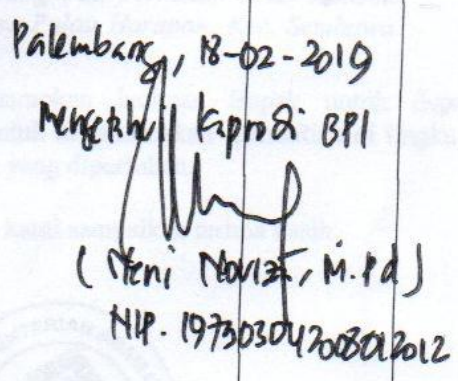 Palembang, 18-02-2019
Mengetahui Kaprodi BPI
( Neni Noviza, M.Pd )
NIP. 197903042008012012